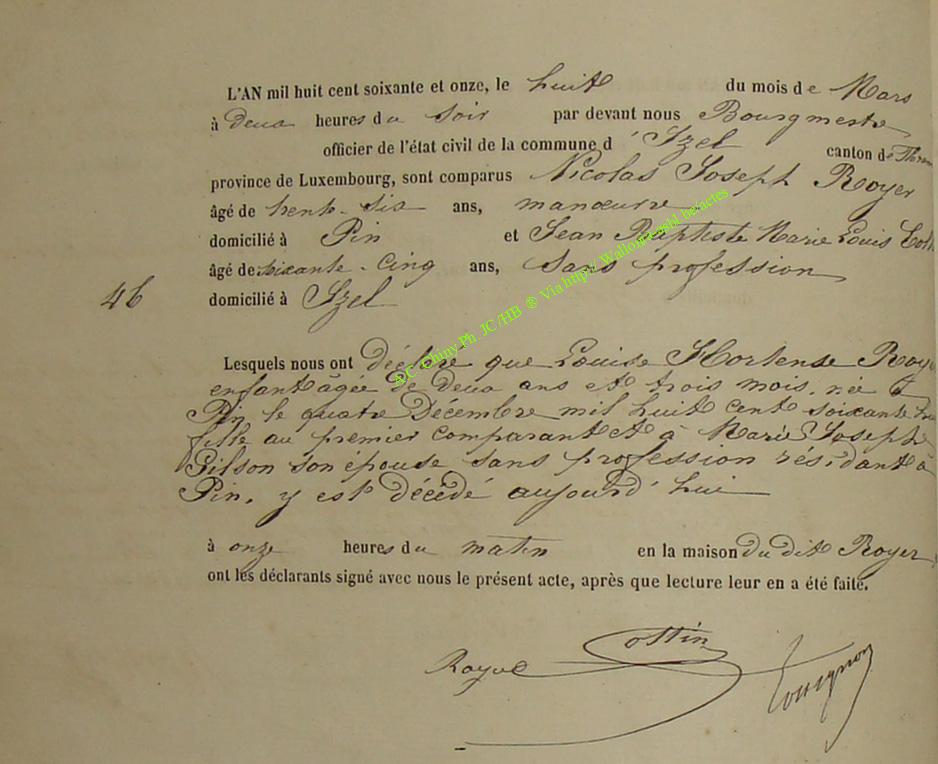 L'AN mil huit cent soixante et onze, le huit du mois de Mars
à deux heures du soir par devant nous Bourgmestre
officier de l'état civil de la commune d'Izel canton de
province de Luxembourg, sont comparus Nicolas Joseph Royer
âgé de trente-six ans, manœuvre
domicilié à Pin et Jean Baptiste Marie Louis
âgé de soixante-cinq ans, sans profession
46 domicilié à Izel
Lesquels nous ont déclaré que Louise Hortense
enfant âgée de deux ans et trois mois, née à
Pin le quatre Décembre mil huit cent soixante
fille au premier comparant et à Marie Joseph
Pilson son épouse sans profession résidant à
Pin, y est décédé aujourd'hui
à onze heures du matin en la maison du dit Royer
ont les déclarants signé avec nous le présent acte, après que lecture leur en a été faite.
Costin
Royer
AC Chiny Ph. JC/HB ® Via http// Wallonia asbl be/actes